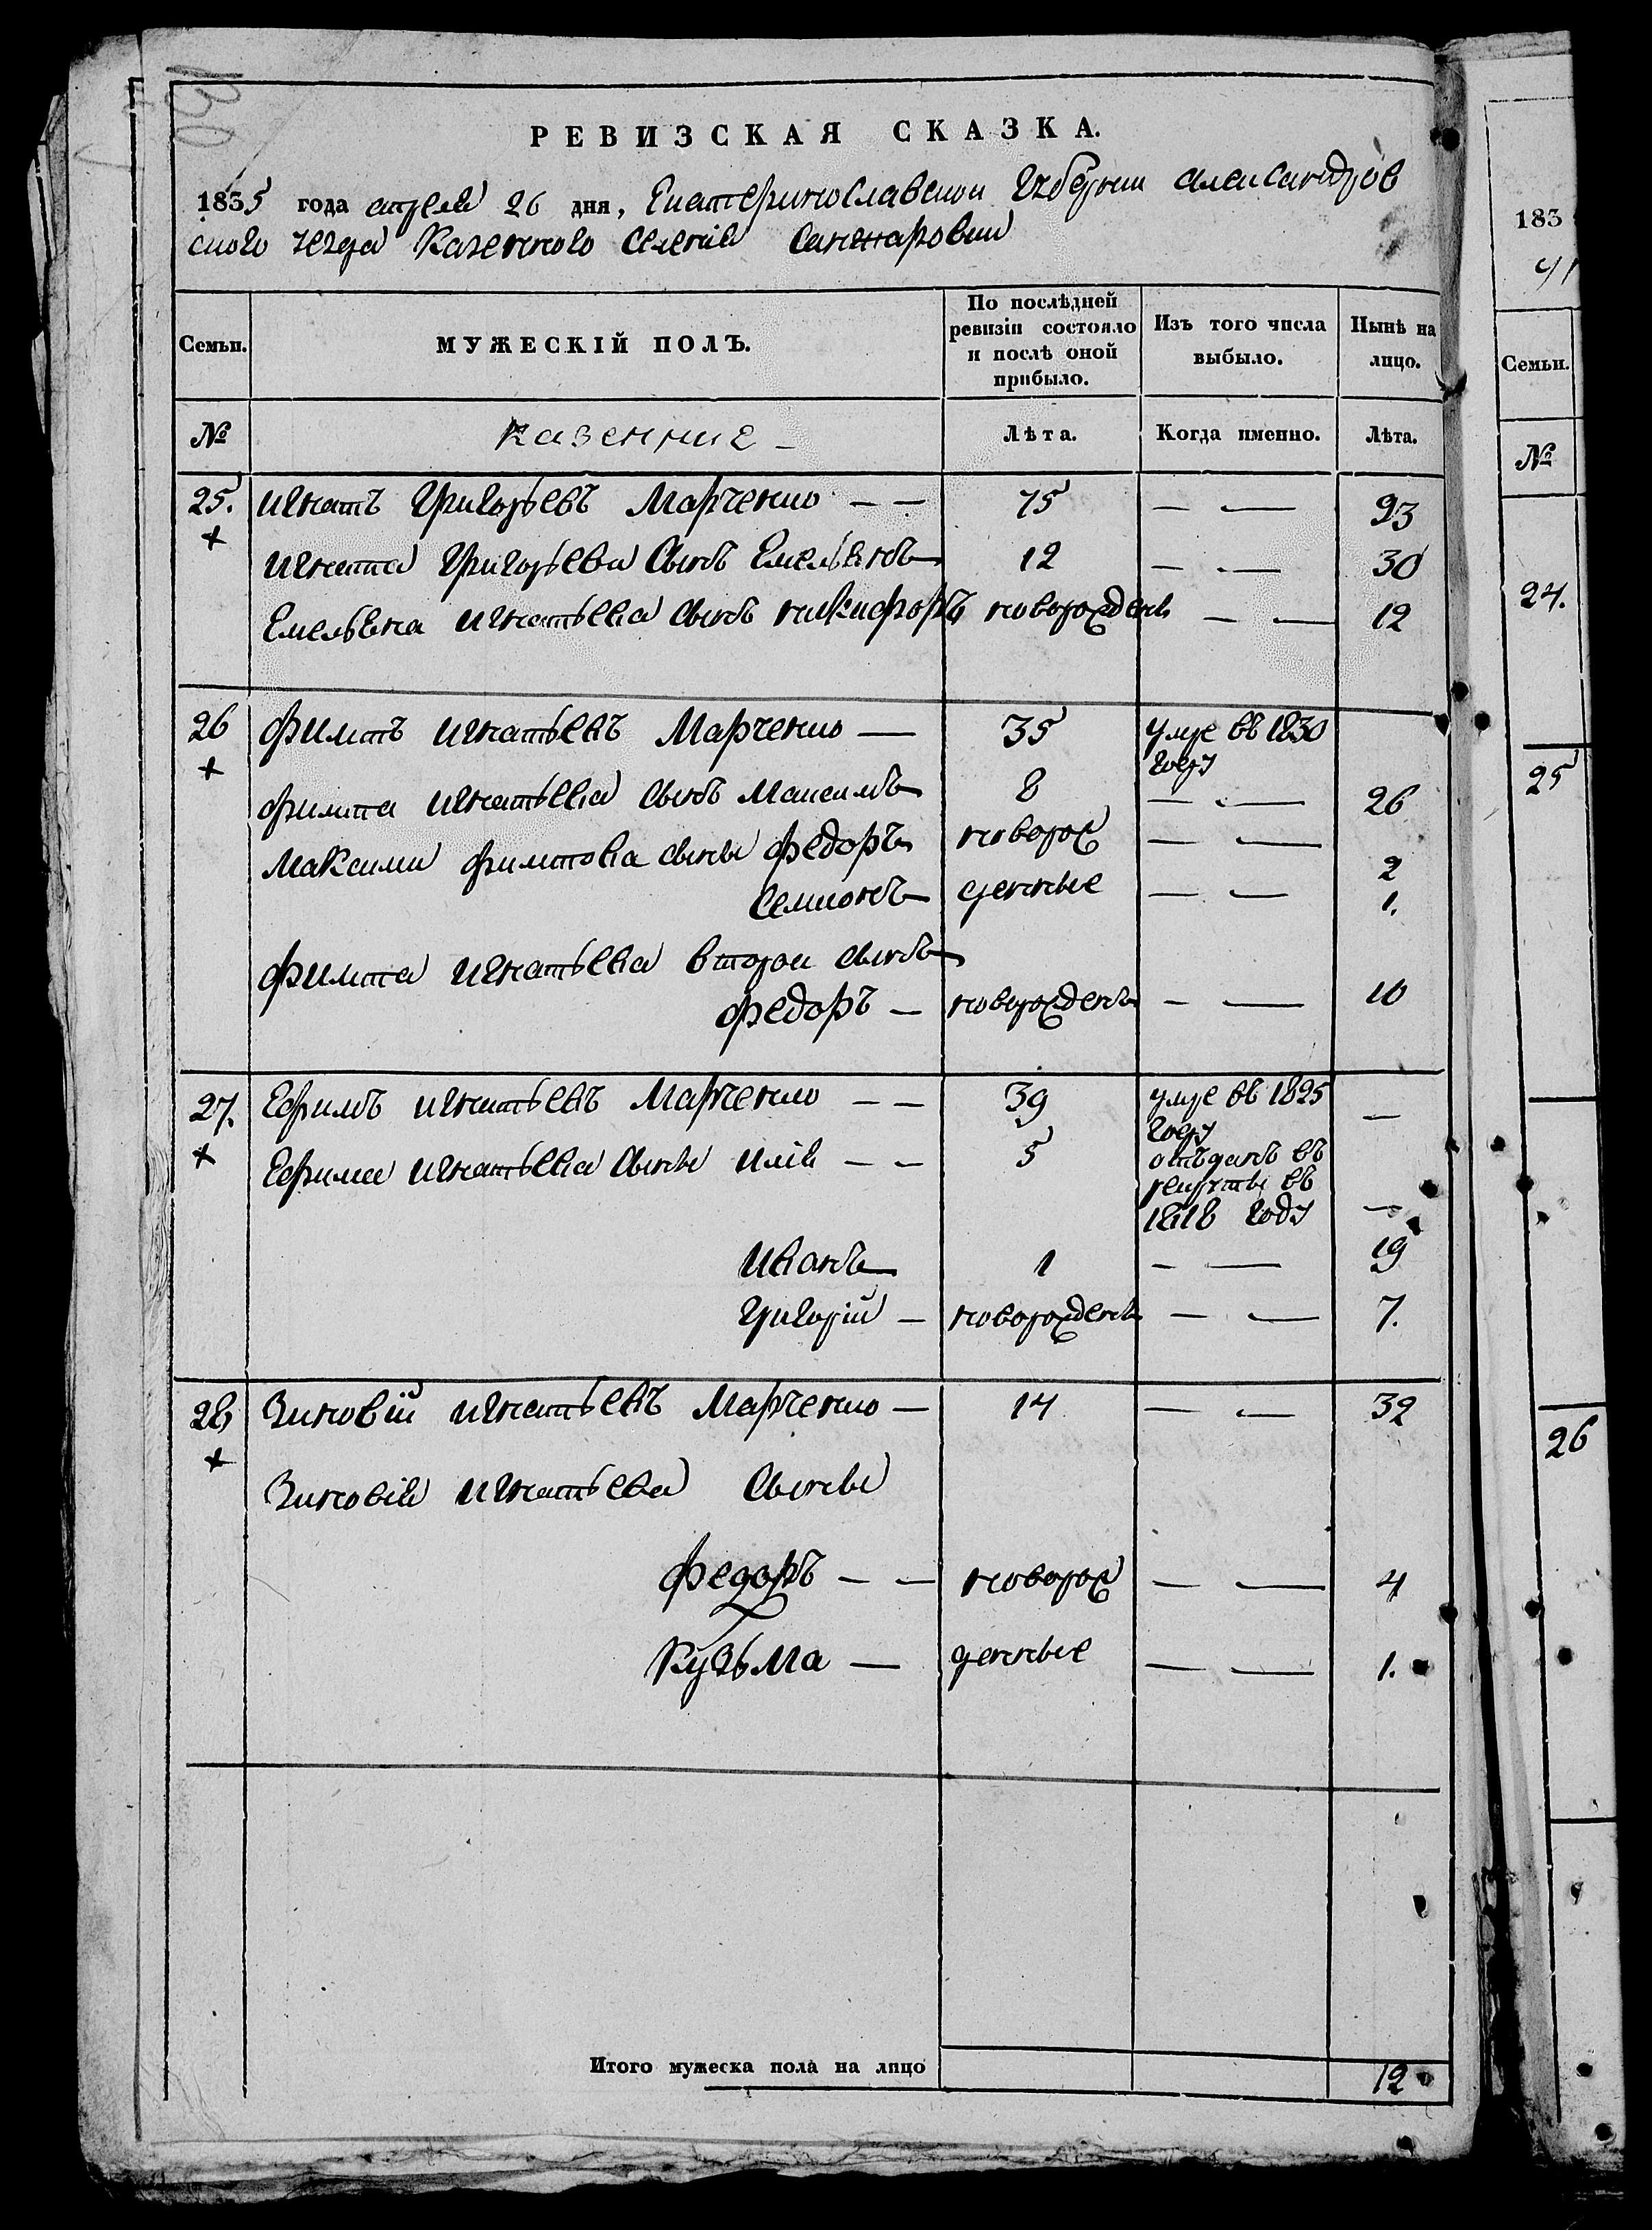 РЕВИЗСКАЯ СКАЗКА.
1835 года апреля 26 дня, Екатеринославской Губернии александров
ского уезда Казенного Селенія Санжаровки
Семьи. МУЖЕСКІЙ ПОЛЪ. По послѣдней ревизіи состояло и послѣ оной прибыло. Изъ того числа выбыло. Нынѣ на лицо.
№ казенние Лѣта. Когда именно. Лѣта.
25. игнатъ Григорьевъ Марченко — — 75 — — 93
игната Григорьева Сынъ Емельянъ 12 — — 30
Емельяна игнатьева сынъ никифоръ новорожденъ — — 12
26 филипъ игнатьевъ Марченко — 35 умре въ 1830
году
филипа игнатьева сынъ Максимъ 8 — — 26
Максима филипова сыны федоръ новорож — — 2
Семионъ денные — — 1.
филипа игнатьева второй сынъ
федоръ — новорожденъ — — 10
27. Ефимъ игнатьевъ Марченко — — 39 умре въ 1825 —
году
Ефима игнатьева Сыны илія — — 5 отъданъ въ
рекруты въ
1818 году —
Иванъ 1 — — 19
Григорій — новорожденъ — — 7.
28 Зиновій игнатьевъ Марченко — 14 — — 32
Зиновія игнатьева Сыны
федоръ — — новорож — — 4
Кузьма — денные — — 1.
Итого мужеска пола на лицо 12
183
Семьи.
№
24.
25
26